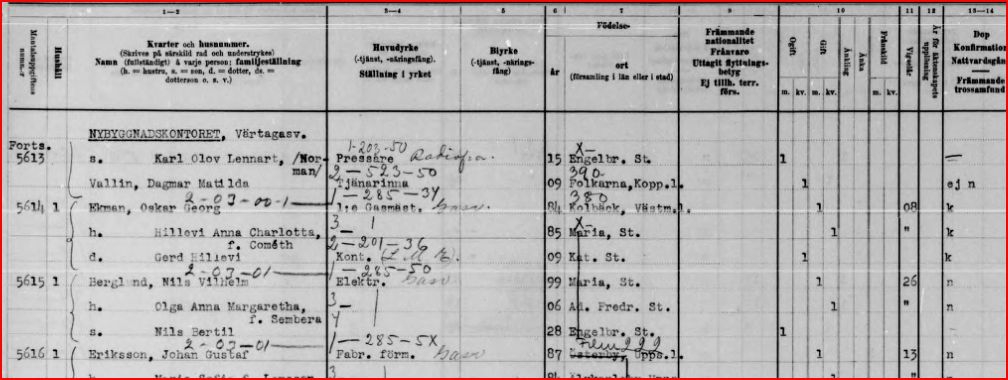 1—2
3—4
5
6
7
9
10
11
12
13—14
Mantalsuppgiftens
Hushåll
Kvarter och husnummer.
(Skrives på särskild rad och understrykes)
Namn (fullständigt) å varje person; familjeställning
(h. = hustru, s. = son, d. = dotter, ds. =
dotterson o. s. v.)
Huvudyrke
(-tjänst, -näringsfång)
Ställning i yrket
Biyrke
(-tjänst, -näringsfång)
Födelse-
år
ort
(församling i län eller i stad)
Främmande
nationalitet
Frånvaro
Uttagit flyttningsbetyg
Ej tillh. terr.
förs.
Ogift
Gift
Änkling
Änka
Frånskild
m. kv. m. kv. m. kv.
Vigselår
År för äktenskapets upplösning
Dop
Konfirmation
Nattvardsgån
Främmande
trossamfund
NYBYGGNADSKONTORET, Värtagasv.
Forts.
1-203-50
5613 s. Karl Olov Lennart, /Nor- Pressare 15 Engelbr. St. 1 —
man/ 2-523-50 390
Vallin, Dagmar Matilda Tjänarinna 09 Folkarna, Kopp.l. 1 ej n
2-03-00-1 1-285-34 380
5614 1 Ekman, Oskar Georg 1:e Gasmäst. Gasv. 84 Kolbäck, Västm.l. 1 08 k
3- X-
h. Hillevi Anna Charlotta, 85 Maria, St. 1 " k
f. Cométh 2-201-36
d. Gerd Hillevi Kont. (L M E.) 09 Kat. St. 1 k
2-03-01 1-285-50
5615 1 Berglund, Nils Vilhelm Elektr. Gasv 99 Maria, St. 1 26 n
3-
h. Olga Anna Margaretha, 06 Ad. Fredr. St. 1 " n
f. Sembera 4
s. Nils Bertil 28 Engelbr. St. 1 n
2-03-01 1-285-5X
5616 1 Eriksson, Johan Gustaf Fabr. förm. Gasv 87 Österby, Upps.l. 1 13 n
3-